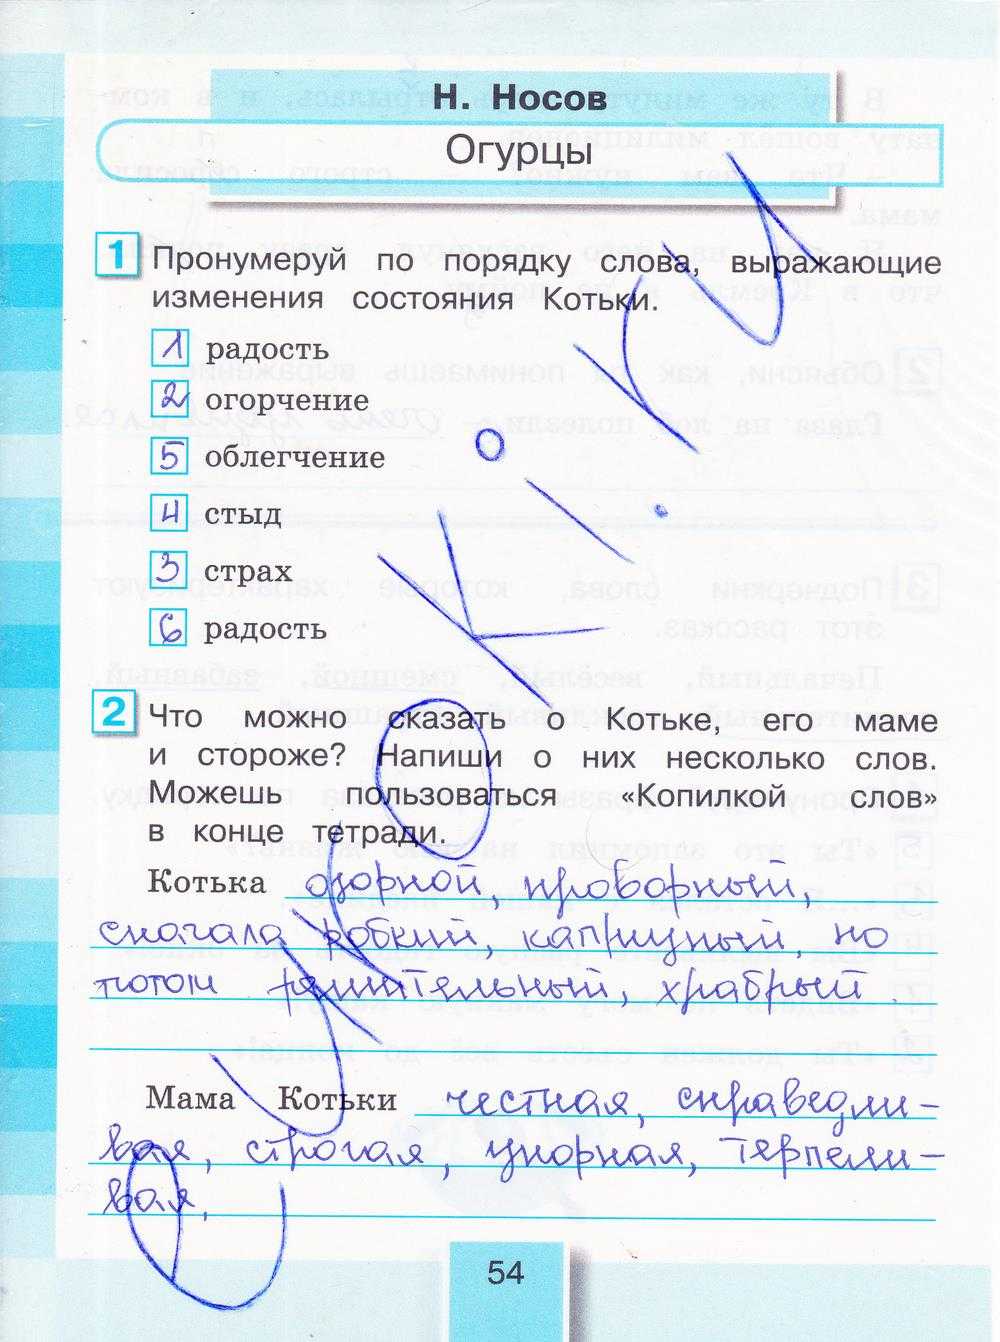 Н. Носов
Огурцы
1 Пронумеруй по порядку слова, выражающие
изменения состояния Котьки.
1 радость
2 огорчение
5 облегчение
4 стыд
3 страх
6 радость
2 Что можно сказать о Котьке, его маме
и стороже? Напиши о них несколько слов.
Можешь пользоваться «Копилкой слов»
в конце тетради.
Котька озорной, проворный,
сначала робкий, капризный, но
потом решительный, храбрый.
Мама Котьки честная, справедли-
вая, строгая, упорная, терпели-
вая,
54